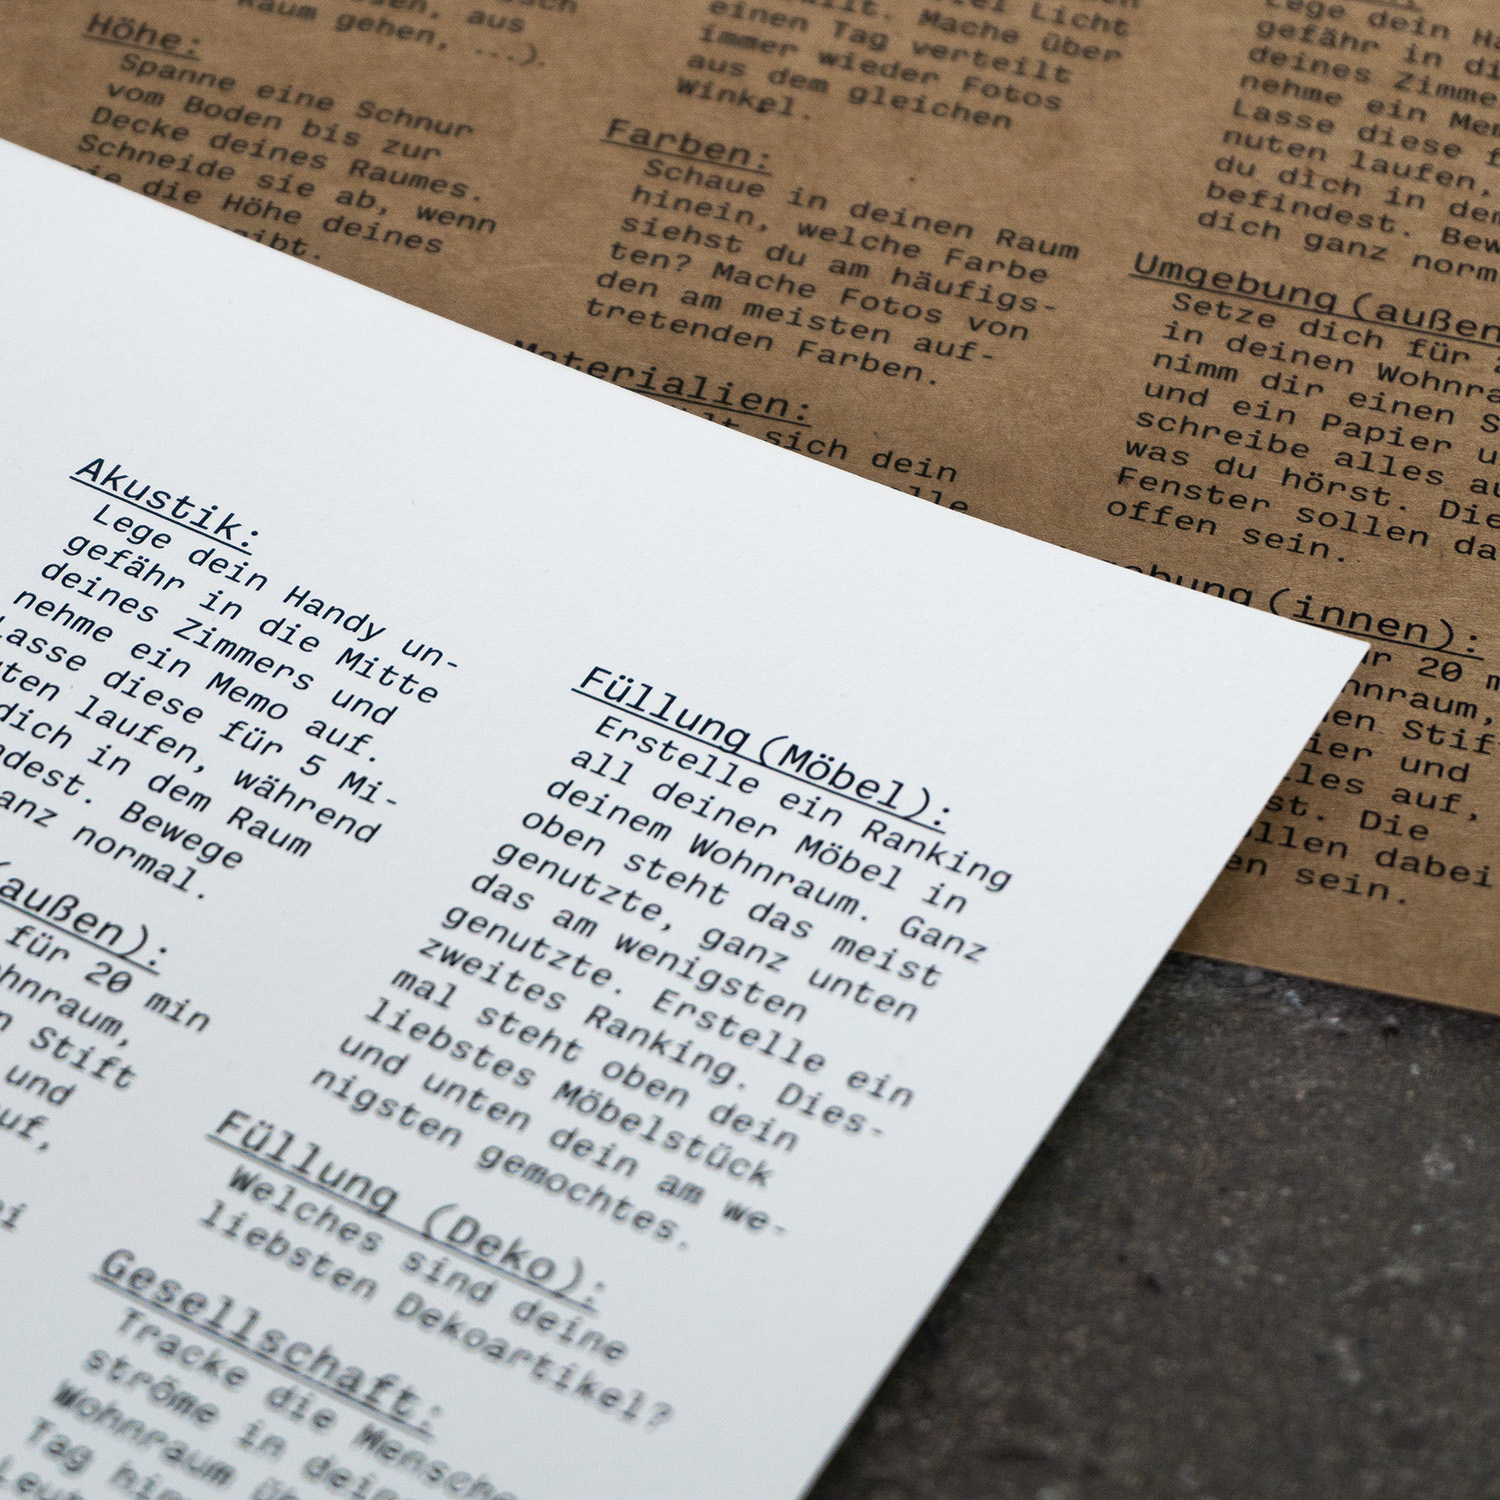 aus
Raum gehen, ...).
Höhe:
Spanne eine Schnur
vom Boden bis zur
Decke deines Raumes.
Schneide sie ab, wenn
sie die Höhe deines
gibt.
Licht
einen Tag verteilt
immer wieder Fotos
aus dem gleichen
Winkel.
Mache über
Farben:
Schaue in deinen Raum
hinein, welche Farbe
siehst du am häufigs-
ten? Mache Fotos von
den am meisten auf-
tretenden Farben.
Materialien:
sich dein
Lege dein
gefähr in
deines
nehme ein
Lasse diese
nuten laufen,
du dich in
befindest.
dich ganz
Umgebung (außen
Setze dich für
in deinen
nimm dir einen
und ein Papier
schreibe alles
was du hörst. Die
Fenster sollen
offen sein.
(innen):
20
Stif
und
auf,
Die
dabei
sein.
Akustik:
Lege dein Handy un-
gefähr in die Mitte
deines Zimmers und
nehme ein Memo auf.
Lasse diese für 5 Mi-
laufen, während
dich in dem Raum
Bewege
normal.
(außen):
für 20 min
Stift
und
Füllung (Möbel):
Erstelle ein Ranking
all deiner Möbel in
deinem Wohnraum. Ganz
oben steht das meist
genutzte, ganz unten
das am wenigsten
genutzte. Erstelle ein
zweites Ranking. Dies-
mal steht oben dein
liebstes Möbelstück
und unten dein am we-
nigsten gemochtes.
Füllung (Deko):
Welches sind deine
liebsten Dekoartikel?
Gesellschaft:
Tracke die
ströme in
Wohnraum
Tag